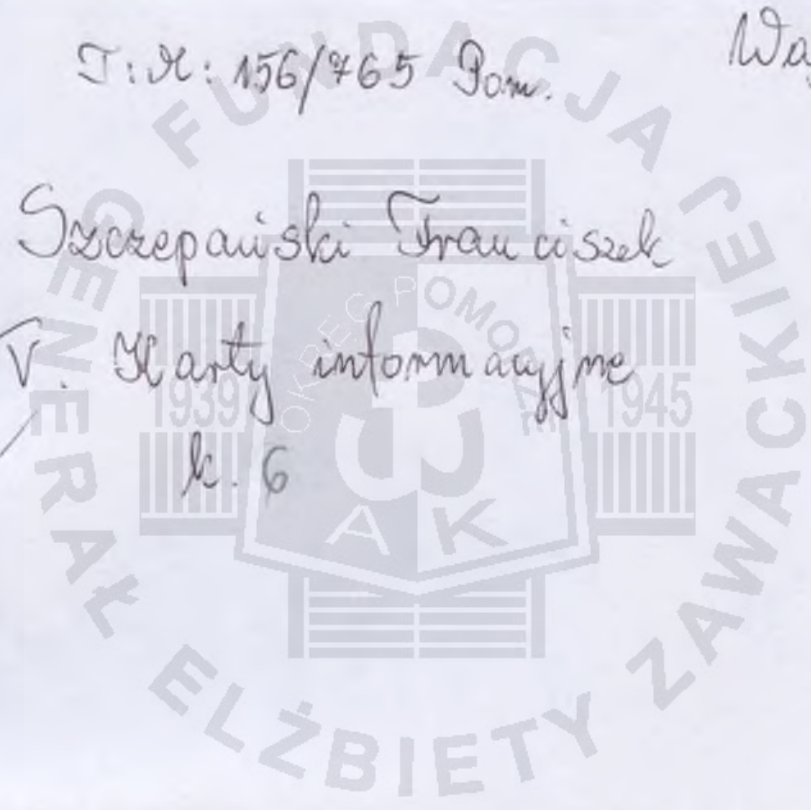 T: M: 156/765 Pom.
Szczepański Franciszek
V. Karty informacyjne
k. 6
FUNDACJA GENERAŁ ELŻBIETY ZAWACKIEJ
OKRĘG POMORZE
1939 1945
AK